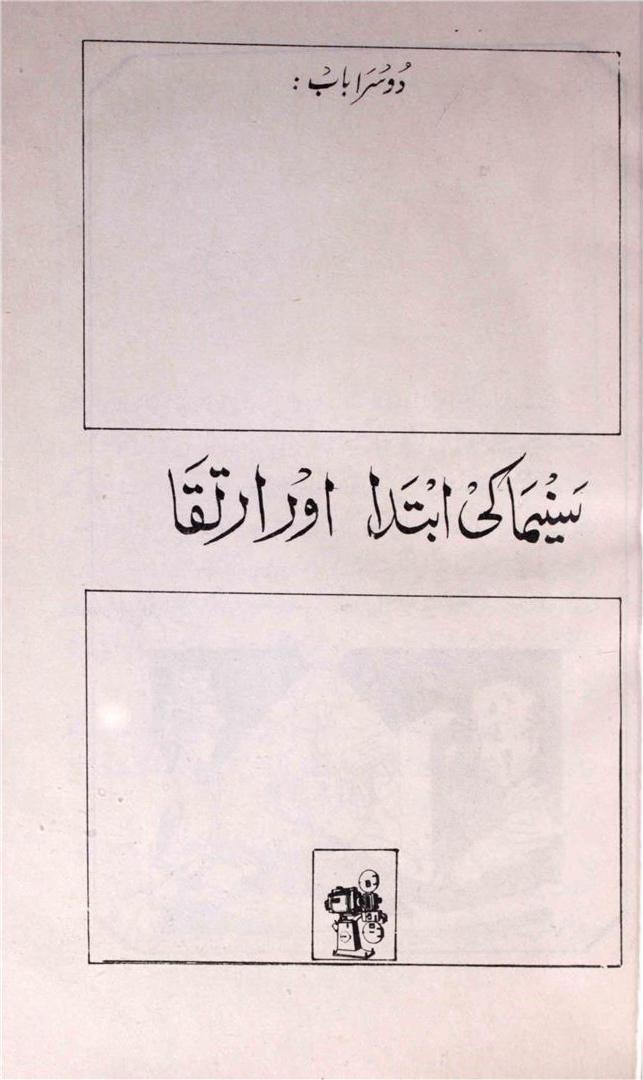 دُوسَرا باب :
سَینیما کی ابْتَدا اور ارتقَا